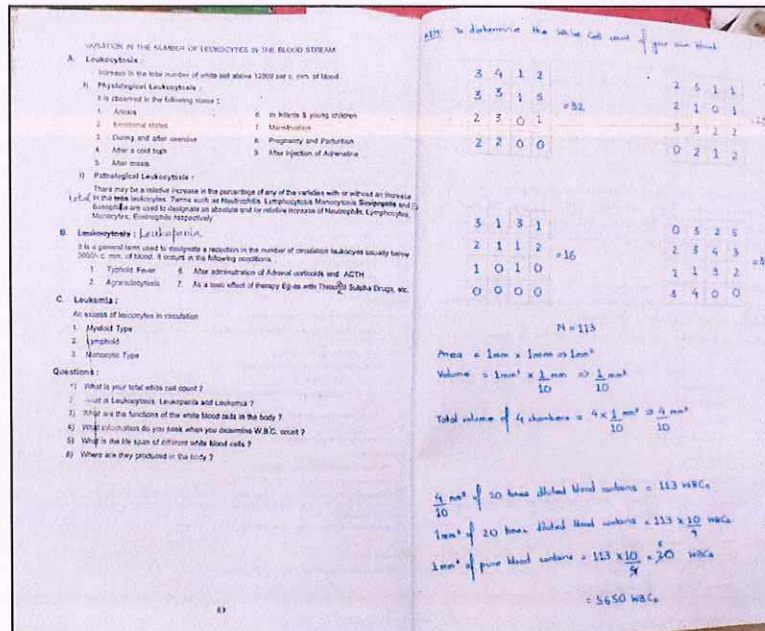 VARIATION IN THE NUMBER OF LEUKOCYTES IN THE BLOOD STREAM
A. Leukocytosis :
Increase in the total number of white cell above 12000 per c. mm. of blood.
I) Physiological Leukocytosis :
It is observed in the following states :
1. Anoxia
2. Emotional states
3. During and after exercise
4. After a cold bath
5. After meals
6. In Infants & young children
7. Menstruation
8. Pregnancy and Parturition
9. After injection of Adrenaline
Pathological Leukocytosis :
There may be a relative increase in the percentage of any of the varieties with or without an increase
total in the leukocytes. Terms such as Neutrophilia, Lymphocytosis Monocytosis and
are used to designate an absolute and /or relative increase of Neutrophils, Lymphocytes,
Monocytes, Eosinophils respectively
B. Leukocytosis : Leukopenia
It is a general term used to designate a reduction in the number of circulation leukocytes usually below
c. mm. of blood. It occurs in the following conditions :
1. Typhoid Fever
2. Agranulocytosis
6. After administration of Adrenal corticoids and ACTH
7. As a toxic effect of therapy Eg-as with Sulpha Drugs, etc.
C. Leukemia :
An excess of leucocytes in circulation
1. Myeloid Type
2. Lymphoid
3. Monocytic Type
Questions :
1) What is your total white cell count ?
2 What is Leukocytosis, Leukopenia and Leukemia ?
3) What are the functions of the white blood cells in the body ?
4) What information do you seek when you determine W.B.C. count ?
5) What is the life span of different white blood cells ?
6) Where are they produced in the body ?
To determine the White Cell count of your own blood
3 4 1 2
3 3 1 5
2 3 0 1
2 2 0 0
=32
2 5 1 1
2 1 0 1
3 3 2 2
0 2 1 2
3 1 3 1
2 1 1 2
1 0 1 0
0 0 0 0
=16
0 5 2 5
2 3 4 3
2 1 3 2
3 4 0 0
N = 113
Area = 1mm x 1mm => 1mm²
Volume = 1mm² x 1/10 mm => 1/10 mm³
Total volume of 4 chambers = 4 x 1/10 mm³ => 4/10 mm³
4/10 mm³ of 20 times diluted blood contains = 113 WBCs
1mm³ of 20 times diluted blood contains = 113 x 10/4 WBCs
1mm³ of pure blood contains = 113 x 10/4 x 20 WBCs
= 5650 WBCs